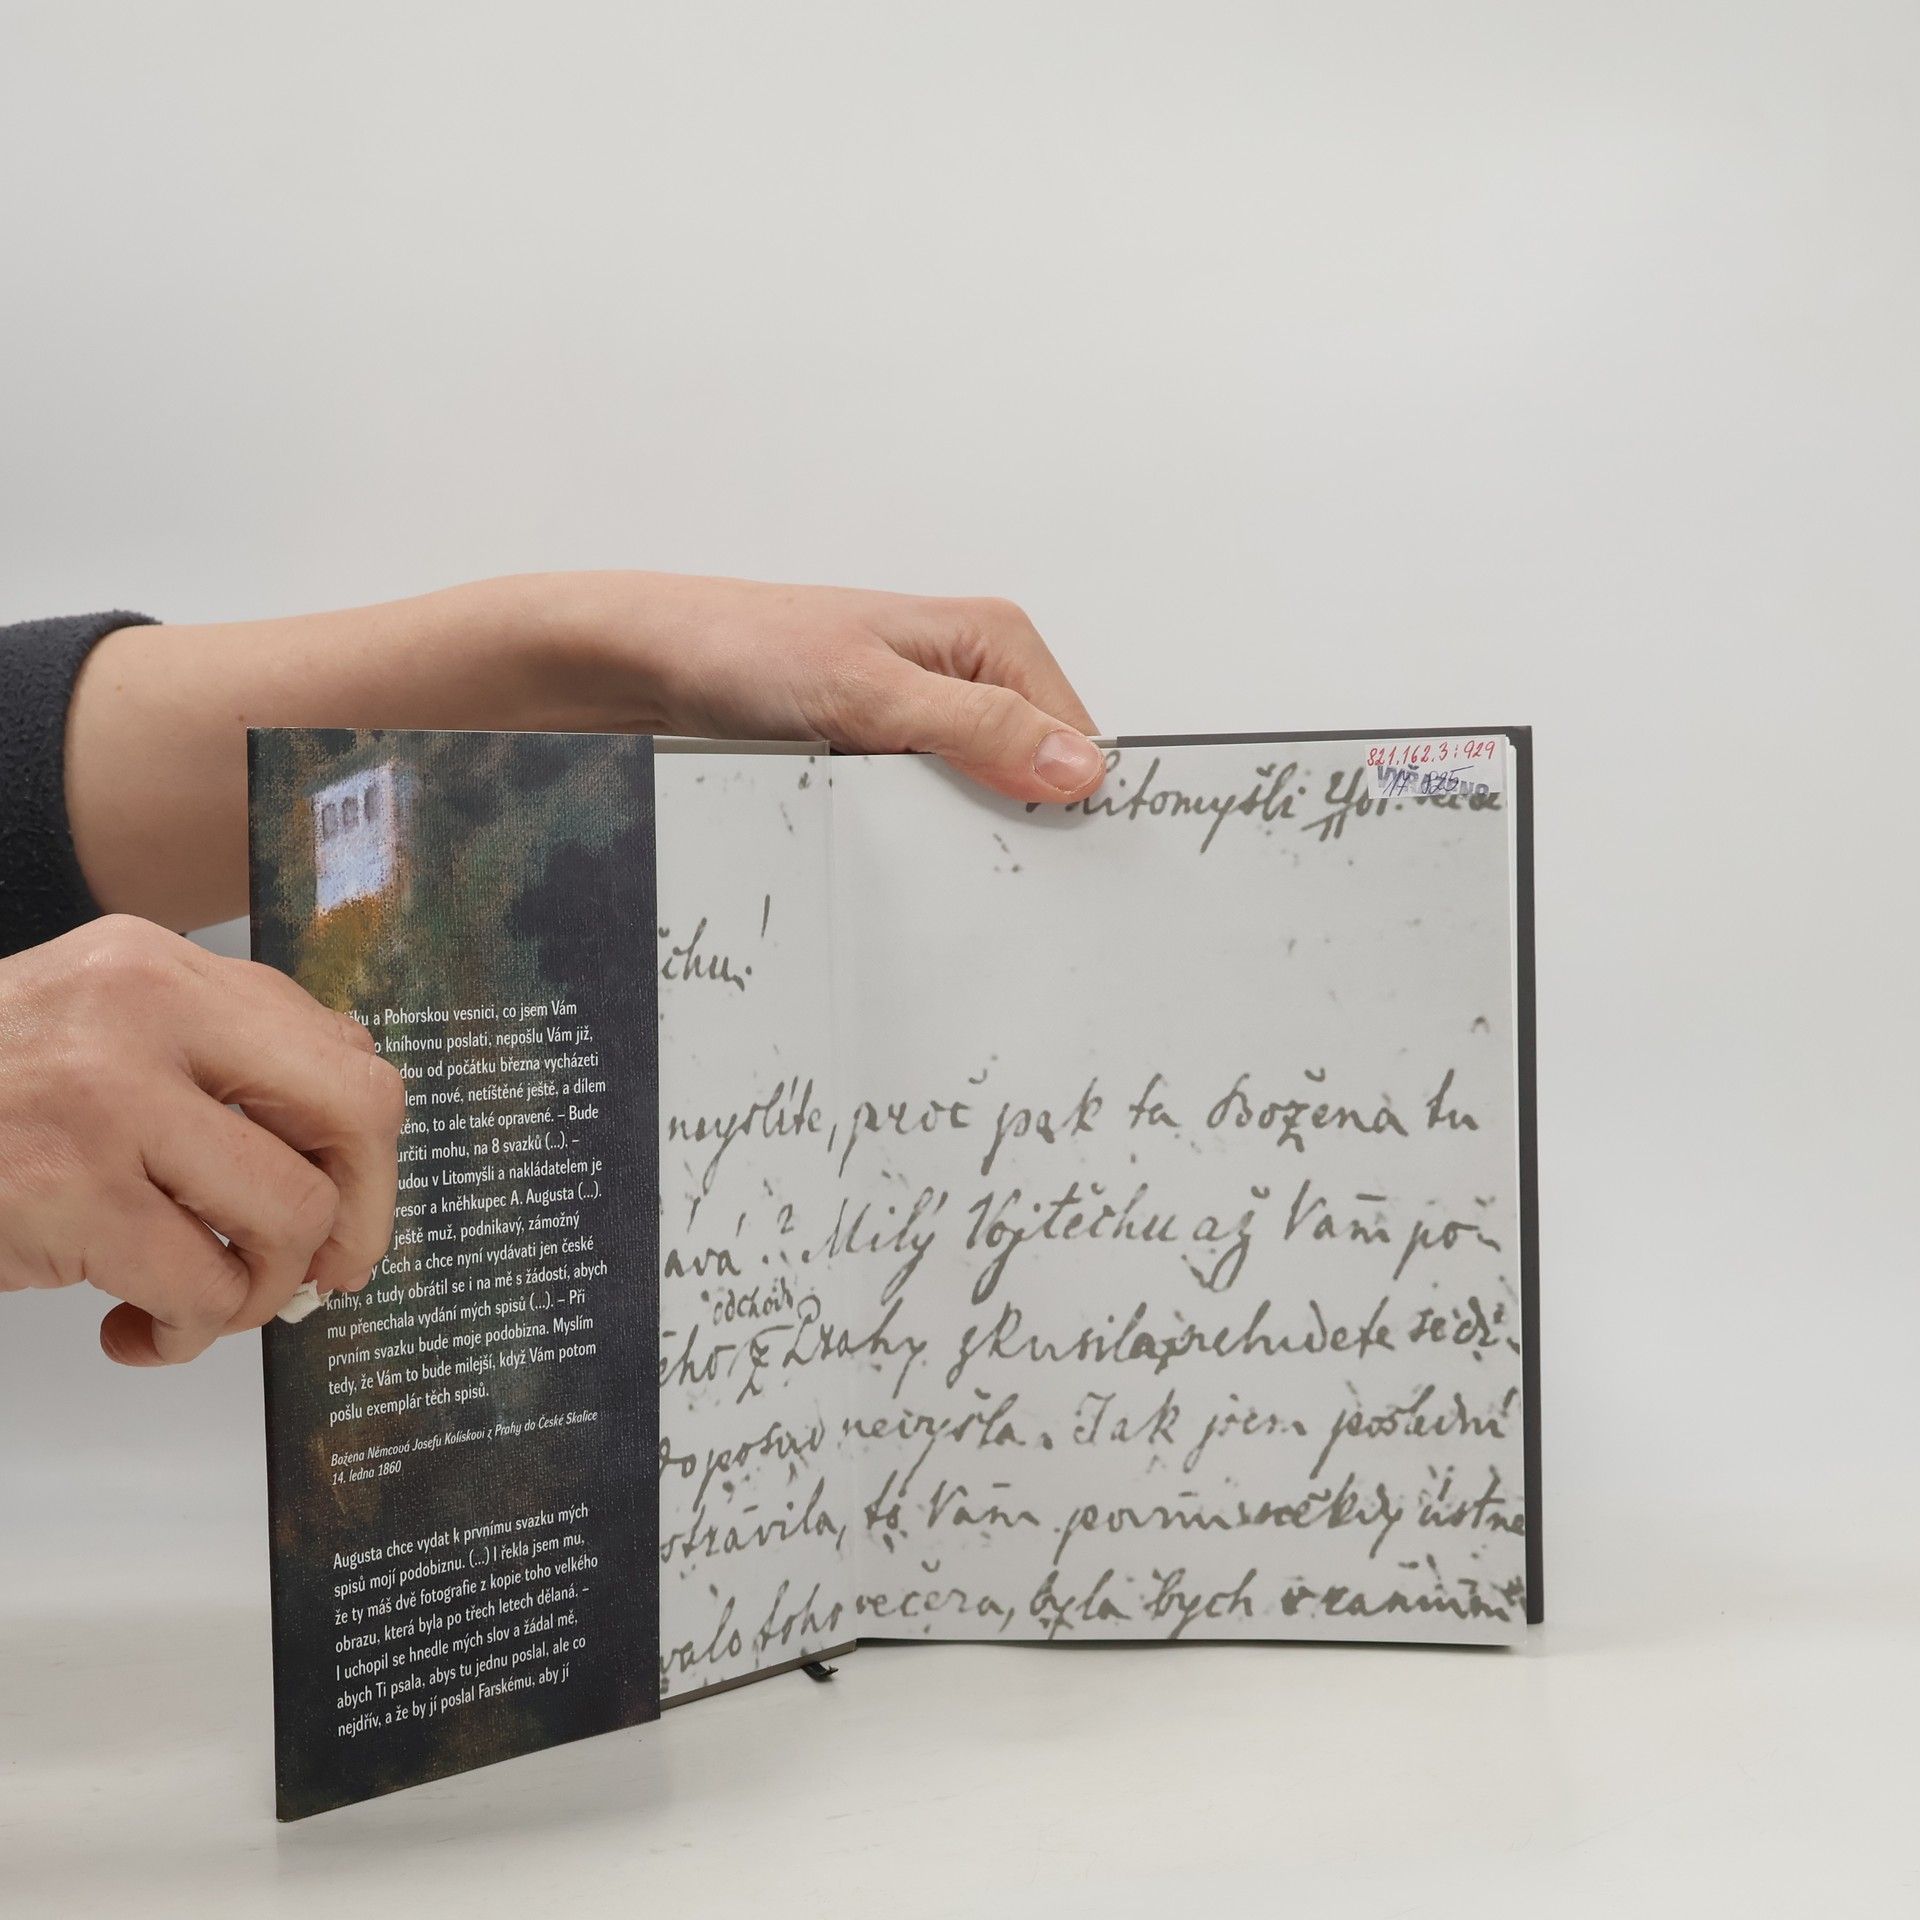 ku a Pohorskou vesnici, co jsem Vám
o kníhovnu poslati, nepošlu Vám již,
dou od počátku března vycházeti
lem nové, netištěné ještě, a dílem
těno, to ale také opravené. – Bude
určiti mohu, na 8 svazků (...). –
udou v Litomyšli a nakládatelem je
resor a kněhkupec A. Augusta (...).
ještě muž, podnikavý, zámožný
y Čech a chce nyní vydávati jen české
knihy, a tudy obrátil se i na mě s žádostí, abych
mu přenechala vydání mých spisů (...). – Při
prvním svazku bude moje podobizna. Myslím
tedy, že Vám to bude milejší, když Vám potom
pošlu exemplár těch spisů.
Božena Němcová Josefu Kolískovi z Prahy do České Skalice
14. ledna 1860
Augusta chce vydat k prvnímu svazku mých
spisů mojí podobiznu. (...) I řekla jsem mu,
že ty máš dvě fotografie z kopie toho velkého
obrazu, která byla po třech letech dělaná. –
I uchopil se hnedle mých slov a žádal mě,
abych Ti psala, abys tu jednu poslal, ale co
nejdřív, a že by jí poslal Farskému, aby jí
821.162.3:929
Litomyšli
čchu!
myslíte, proč pak ta Božena tu
ává? Milý Vojtěchu až Vám po-
odchodu
ého z Prahy zkusila, nebudete se di-
doposud nevyšla. Jak jsem poslední
strávila, to Vám povím někdy ústně
valo toho večera, byla bych v ranním